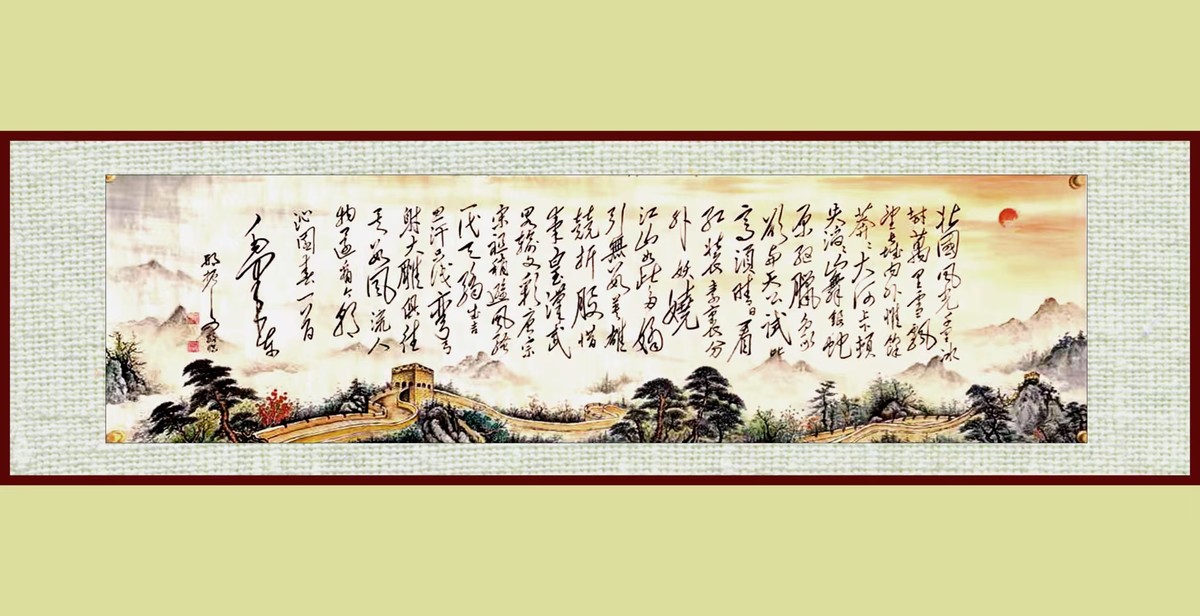 北國風光千里冰
封萬里雪飄
望長城內外惟餘
莽〻大河上下頓
失滔〻山舞銀蛇
原馳臘象
欲與天公試比
高須晴日看
紅裝素裹分
外妖嬈
江山如此多嬌
引無數英雄
競折腰惜
秦皇漢武
略輸文彩唐宗
宋祖稍遜風騷
一代天驕成吉
思汗只識彎弓
射大雕俱往
矣數風流人
物還看今朝
沁園春一首
毛澤東